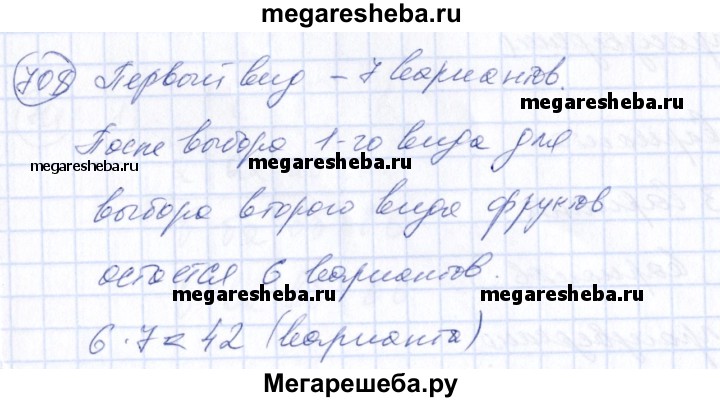 megaresheba.ru
708 Первый вид – 7 вариантов.
megaresheba.ru
После выбора 1-го вида для
megaresheba.ru megaresheba.ru
выбора второго вида фруктов
остается 6 вариантов.
megaresheba.ru megaresheba.ru
6 · 7 = 42 (варианта)
Мегарешеба.ру